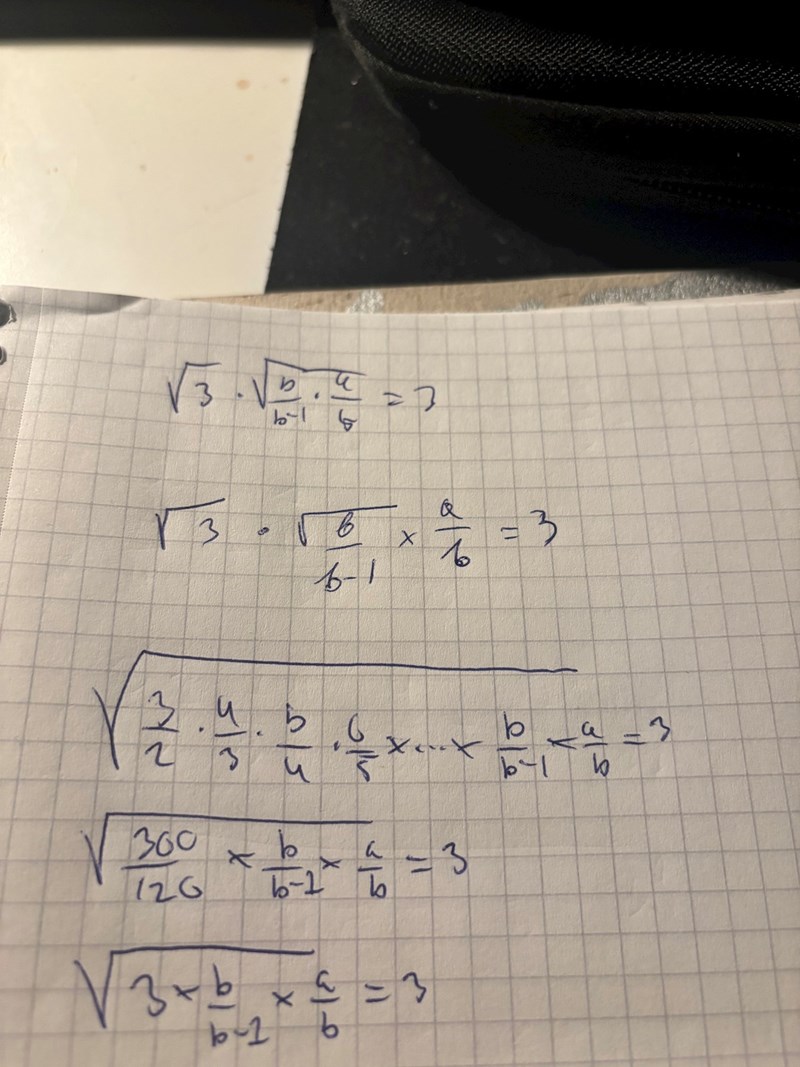 √3 · √(b/(b-1) · a/b) = 3
√3 · √(b/(b-1)) × a/b = 3
√(3/2 · 4/3 · 5/4 · 6/5 × ... × b/(b-1) × a/b) = 3
√(360/120 × b/(b-1) × a/b) = 3
√(3 × b/(b-1) × a/b) = 3